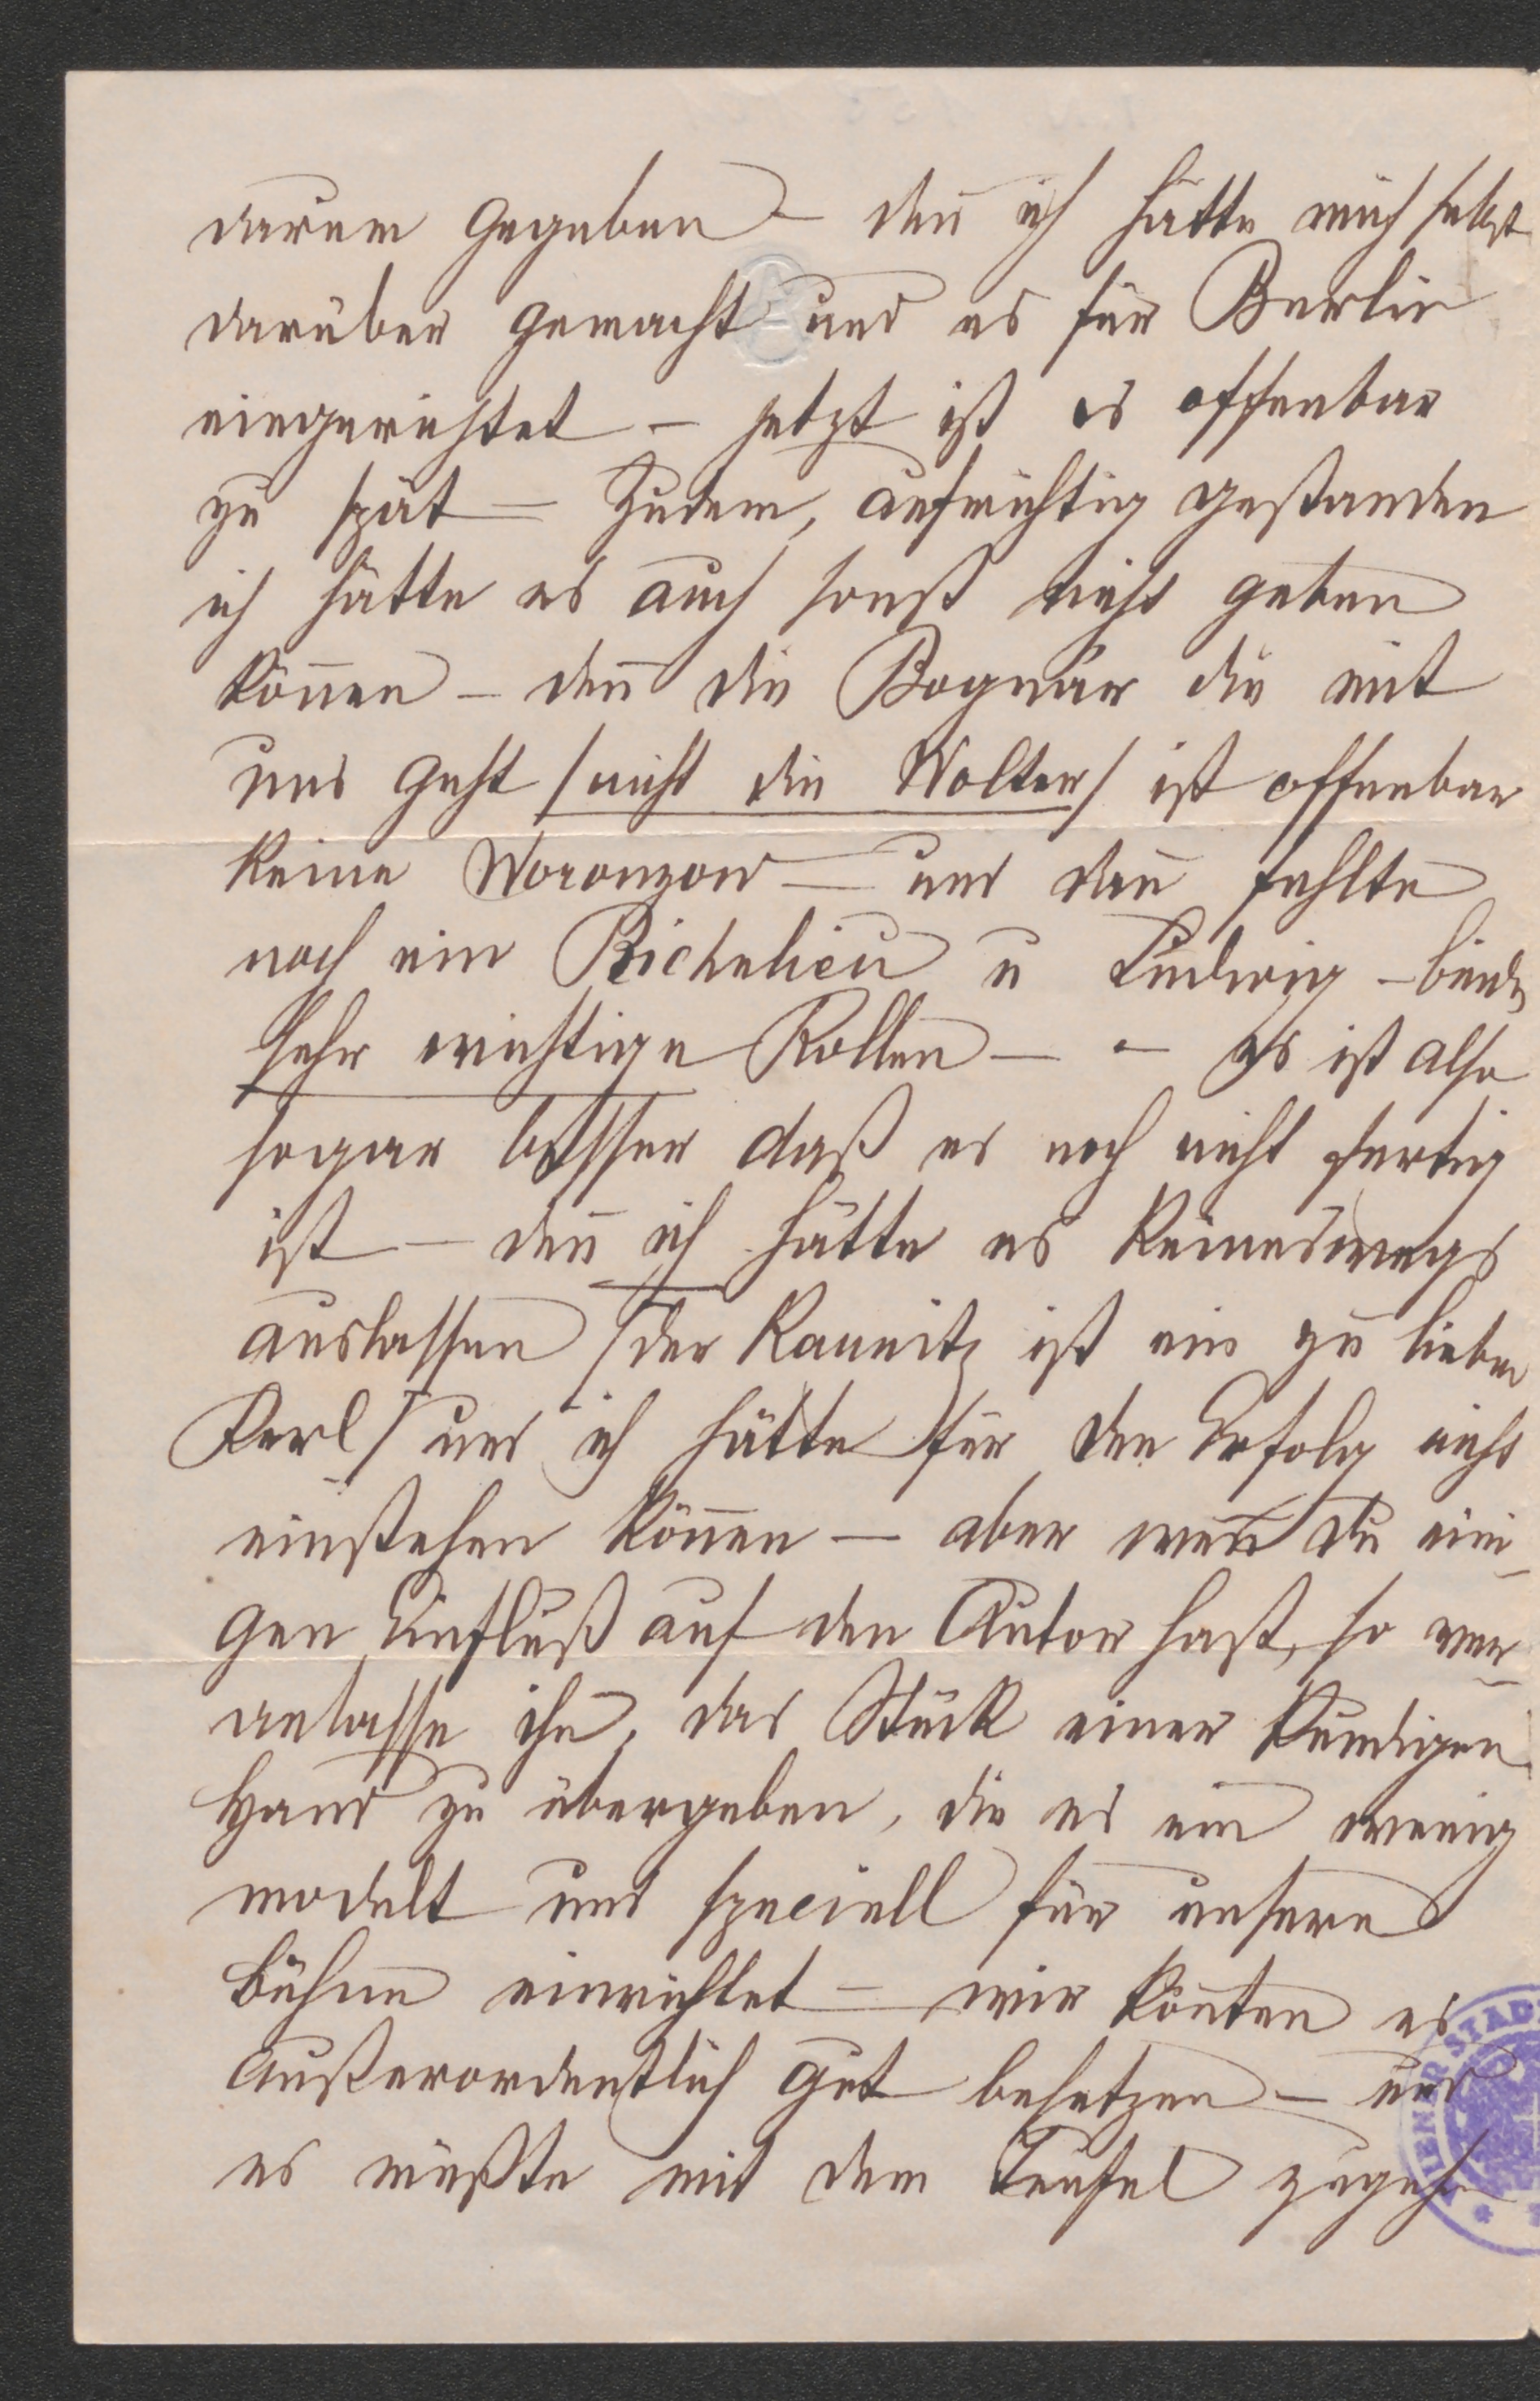 darum gegeben – den̄ ich hätte mich selbst
darüber gemacht und es für Berlin
eingerichtet – jetzt ist es offenbar
zu spät – Zudem, aufrichtig gestanden
ich hätte es auch sonst nicht geben
kön̄en – den̄ die Bognár die mit
uns geht /nicht die Wolter/ ist offenbar
keine Woronzow – und dan̄ fehlte
noch ein Richelieu u Ludwig – beides
sehr wichtige Rollen – – Es ist also
sogar besser daß es noch nicht fertig
ist – den̄ ich hätte es keineswegs
auslassen /der Kaunitz ist ein zu lieber
Kerl/ und ich hätte für den Erfolg nicht
einstehen kön̄en – aber wen̄ du eini-
gen Einfluß auf den Autor hast, so ver-
anlasse ihn, das Stück einer kundigen
Hand zu übergeben, die es ein wenig
modelt und speciell für unsere
Bühne einrichtet – wir kön̄ten es
außerordentlich gut besetzen – und
es müßte mit dem Teufel zugehn
WIENER STAD